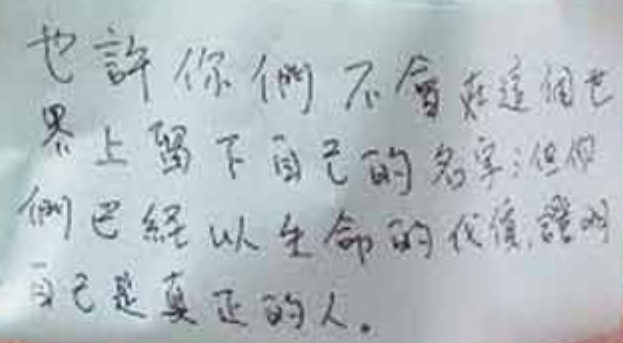 也許你們不會在這個世
界上留下自己的名字；但你
們已經以生命的代價，證明
自己是真正的人。